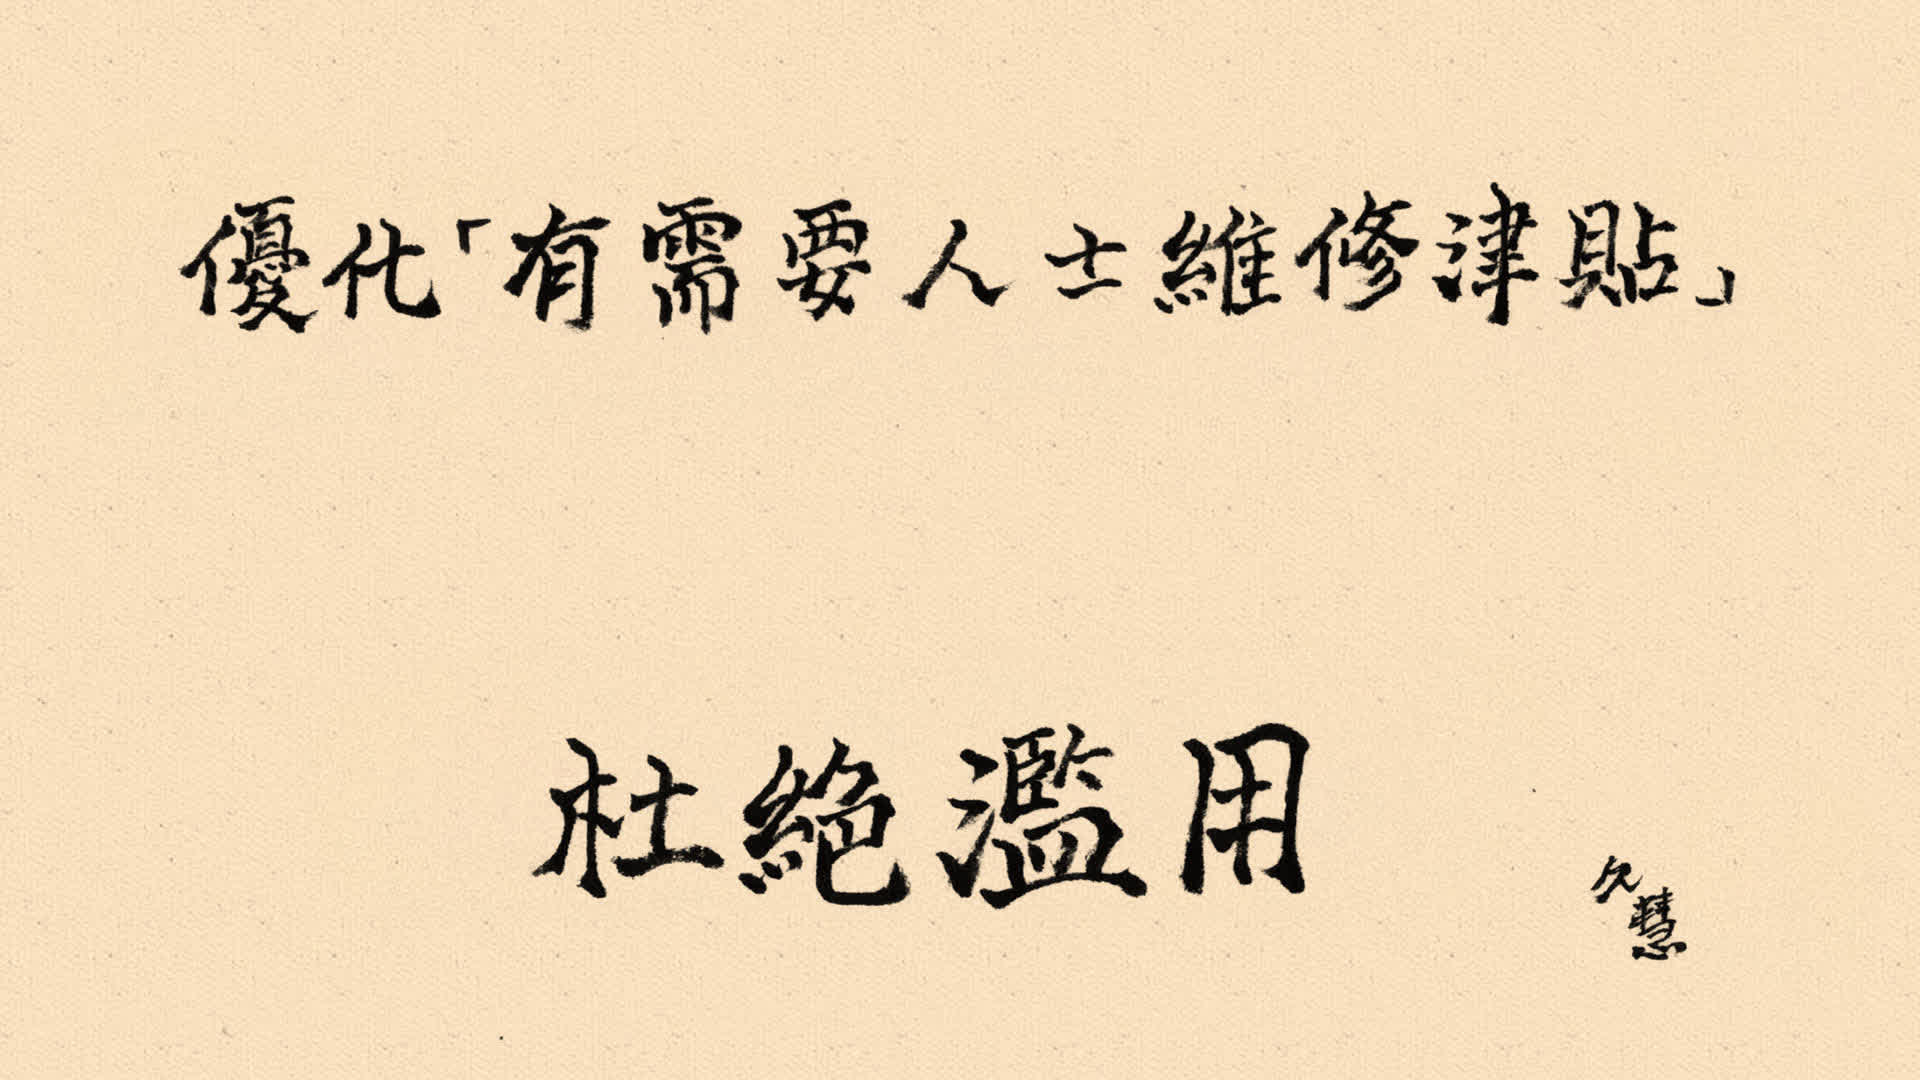 優化「有需要人士維修津貼」
杜絕濫用
久慧